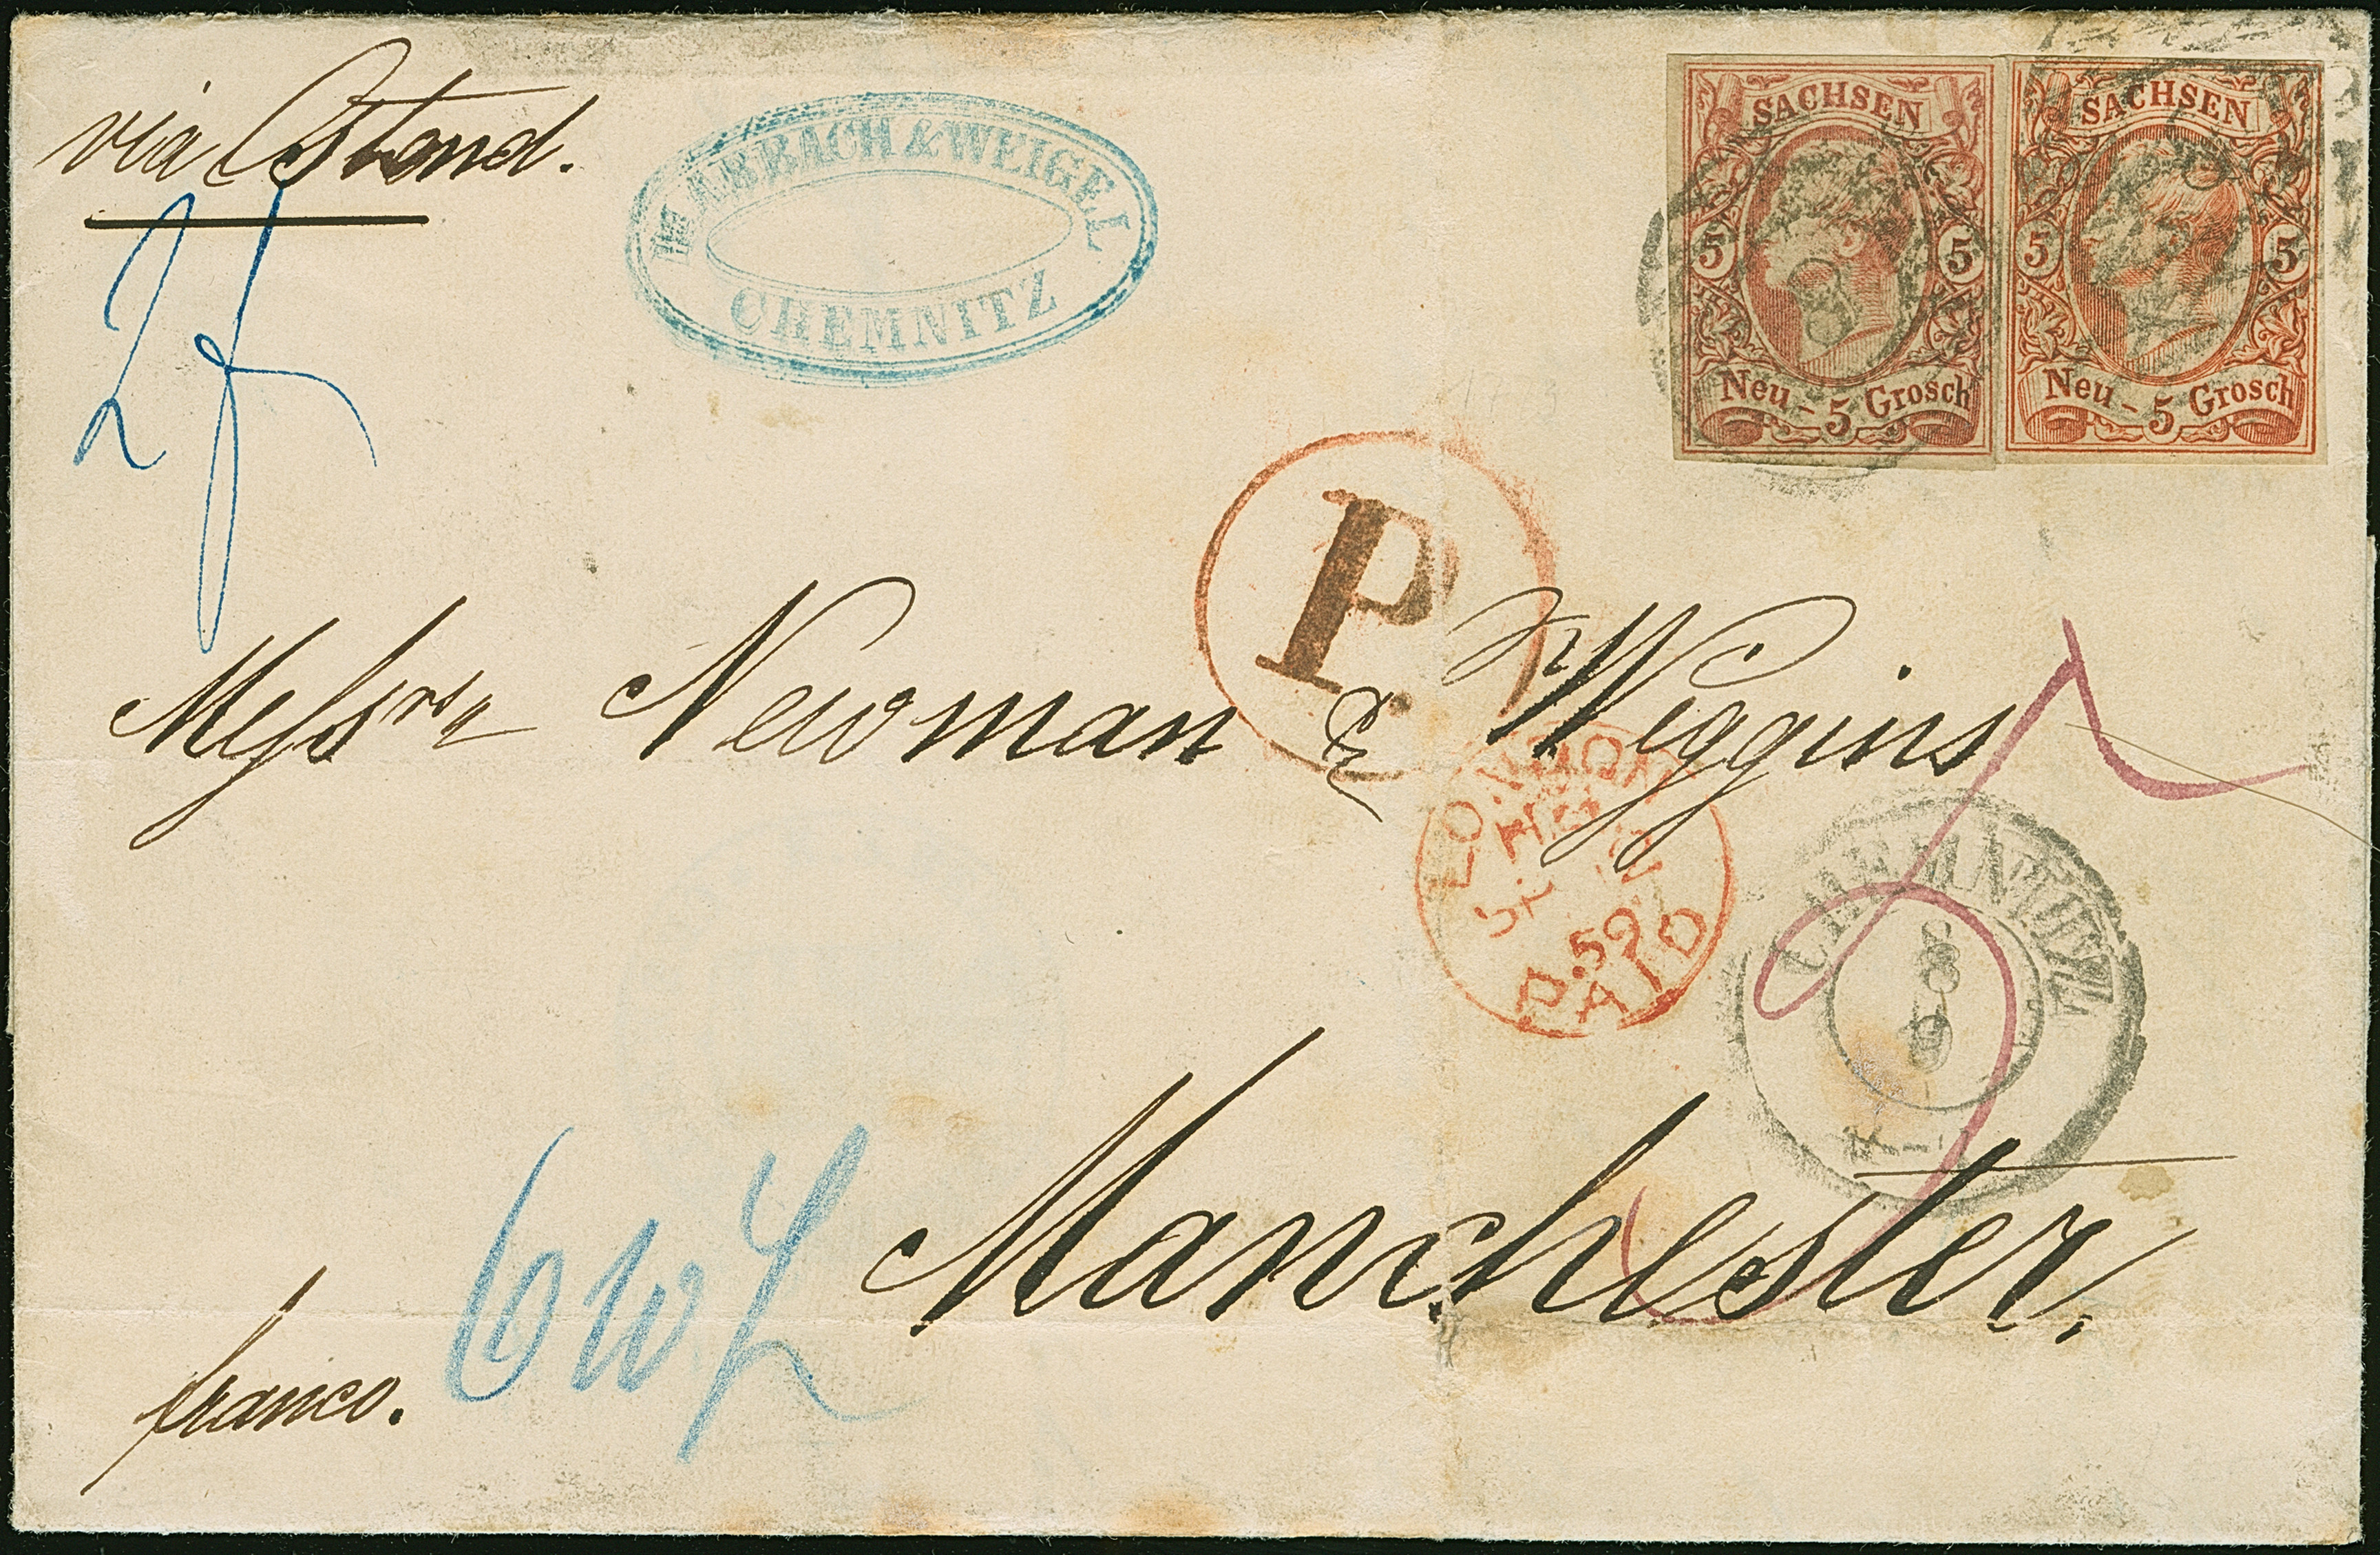 via Ostend.
MARBACH & WEIGEL
CHEMNITZ
SACHSEN
5 5
Neu - 5 Grosch
SACHSEN
5 5
Neu - 5 Grosch
8
2f
P.
Messrs Newman & Wiggins
LONDON
59
PAID
CHEMNITZ
8
9
Manchester.
franco.